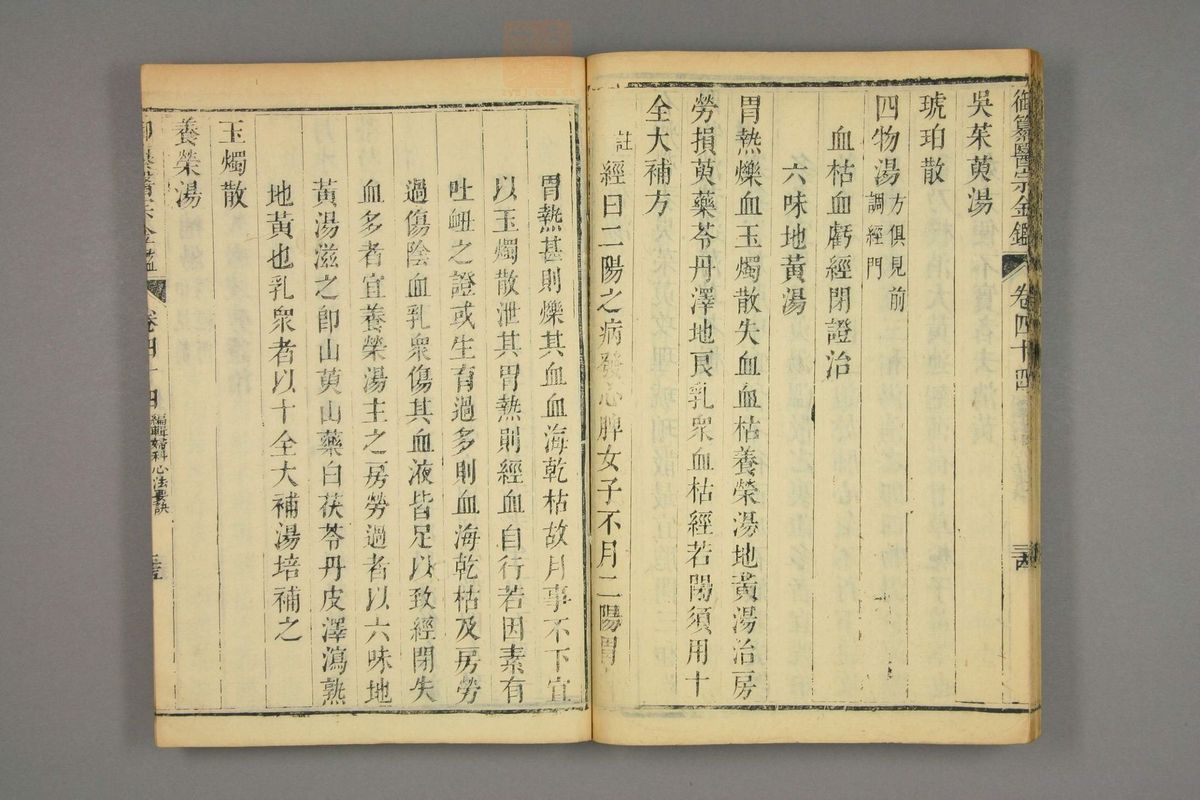 御纂醫宗金鑑 卷四十四
吳茱萸湯
琥珀散
四物湯 方俱見前
調經門
血枯血虧經閉證治
六味地黃湯
胃熱爍血玉燭散失血血枯養榮湯地黃湯治房
勞損萸藥苓丹澤地良乳衆血枯經若閉須用十
全大補方
註 經曰二陽之病發心脾女子不月二陽胃
胃熱甚則爍其血血海乾枯故月事不下宜
以玉燭散泄其胃熱則經血自行若因素有
吐衄之證或生育過多則血海乾枯及房勞
過傷陰血乳衆傷其血液皆足以致經閉失
血多者宜養榮湯主之房勞過者以六味地
黃湯滋之即山萸山藥白茯苓丹皮澤瀉熟
地黃也乳衆者以十全大補湯培補之
玉燭散
養榮湯
卷四十四 編輯婦科心法要訣